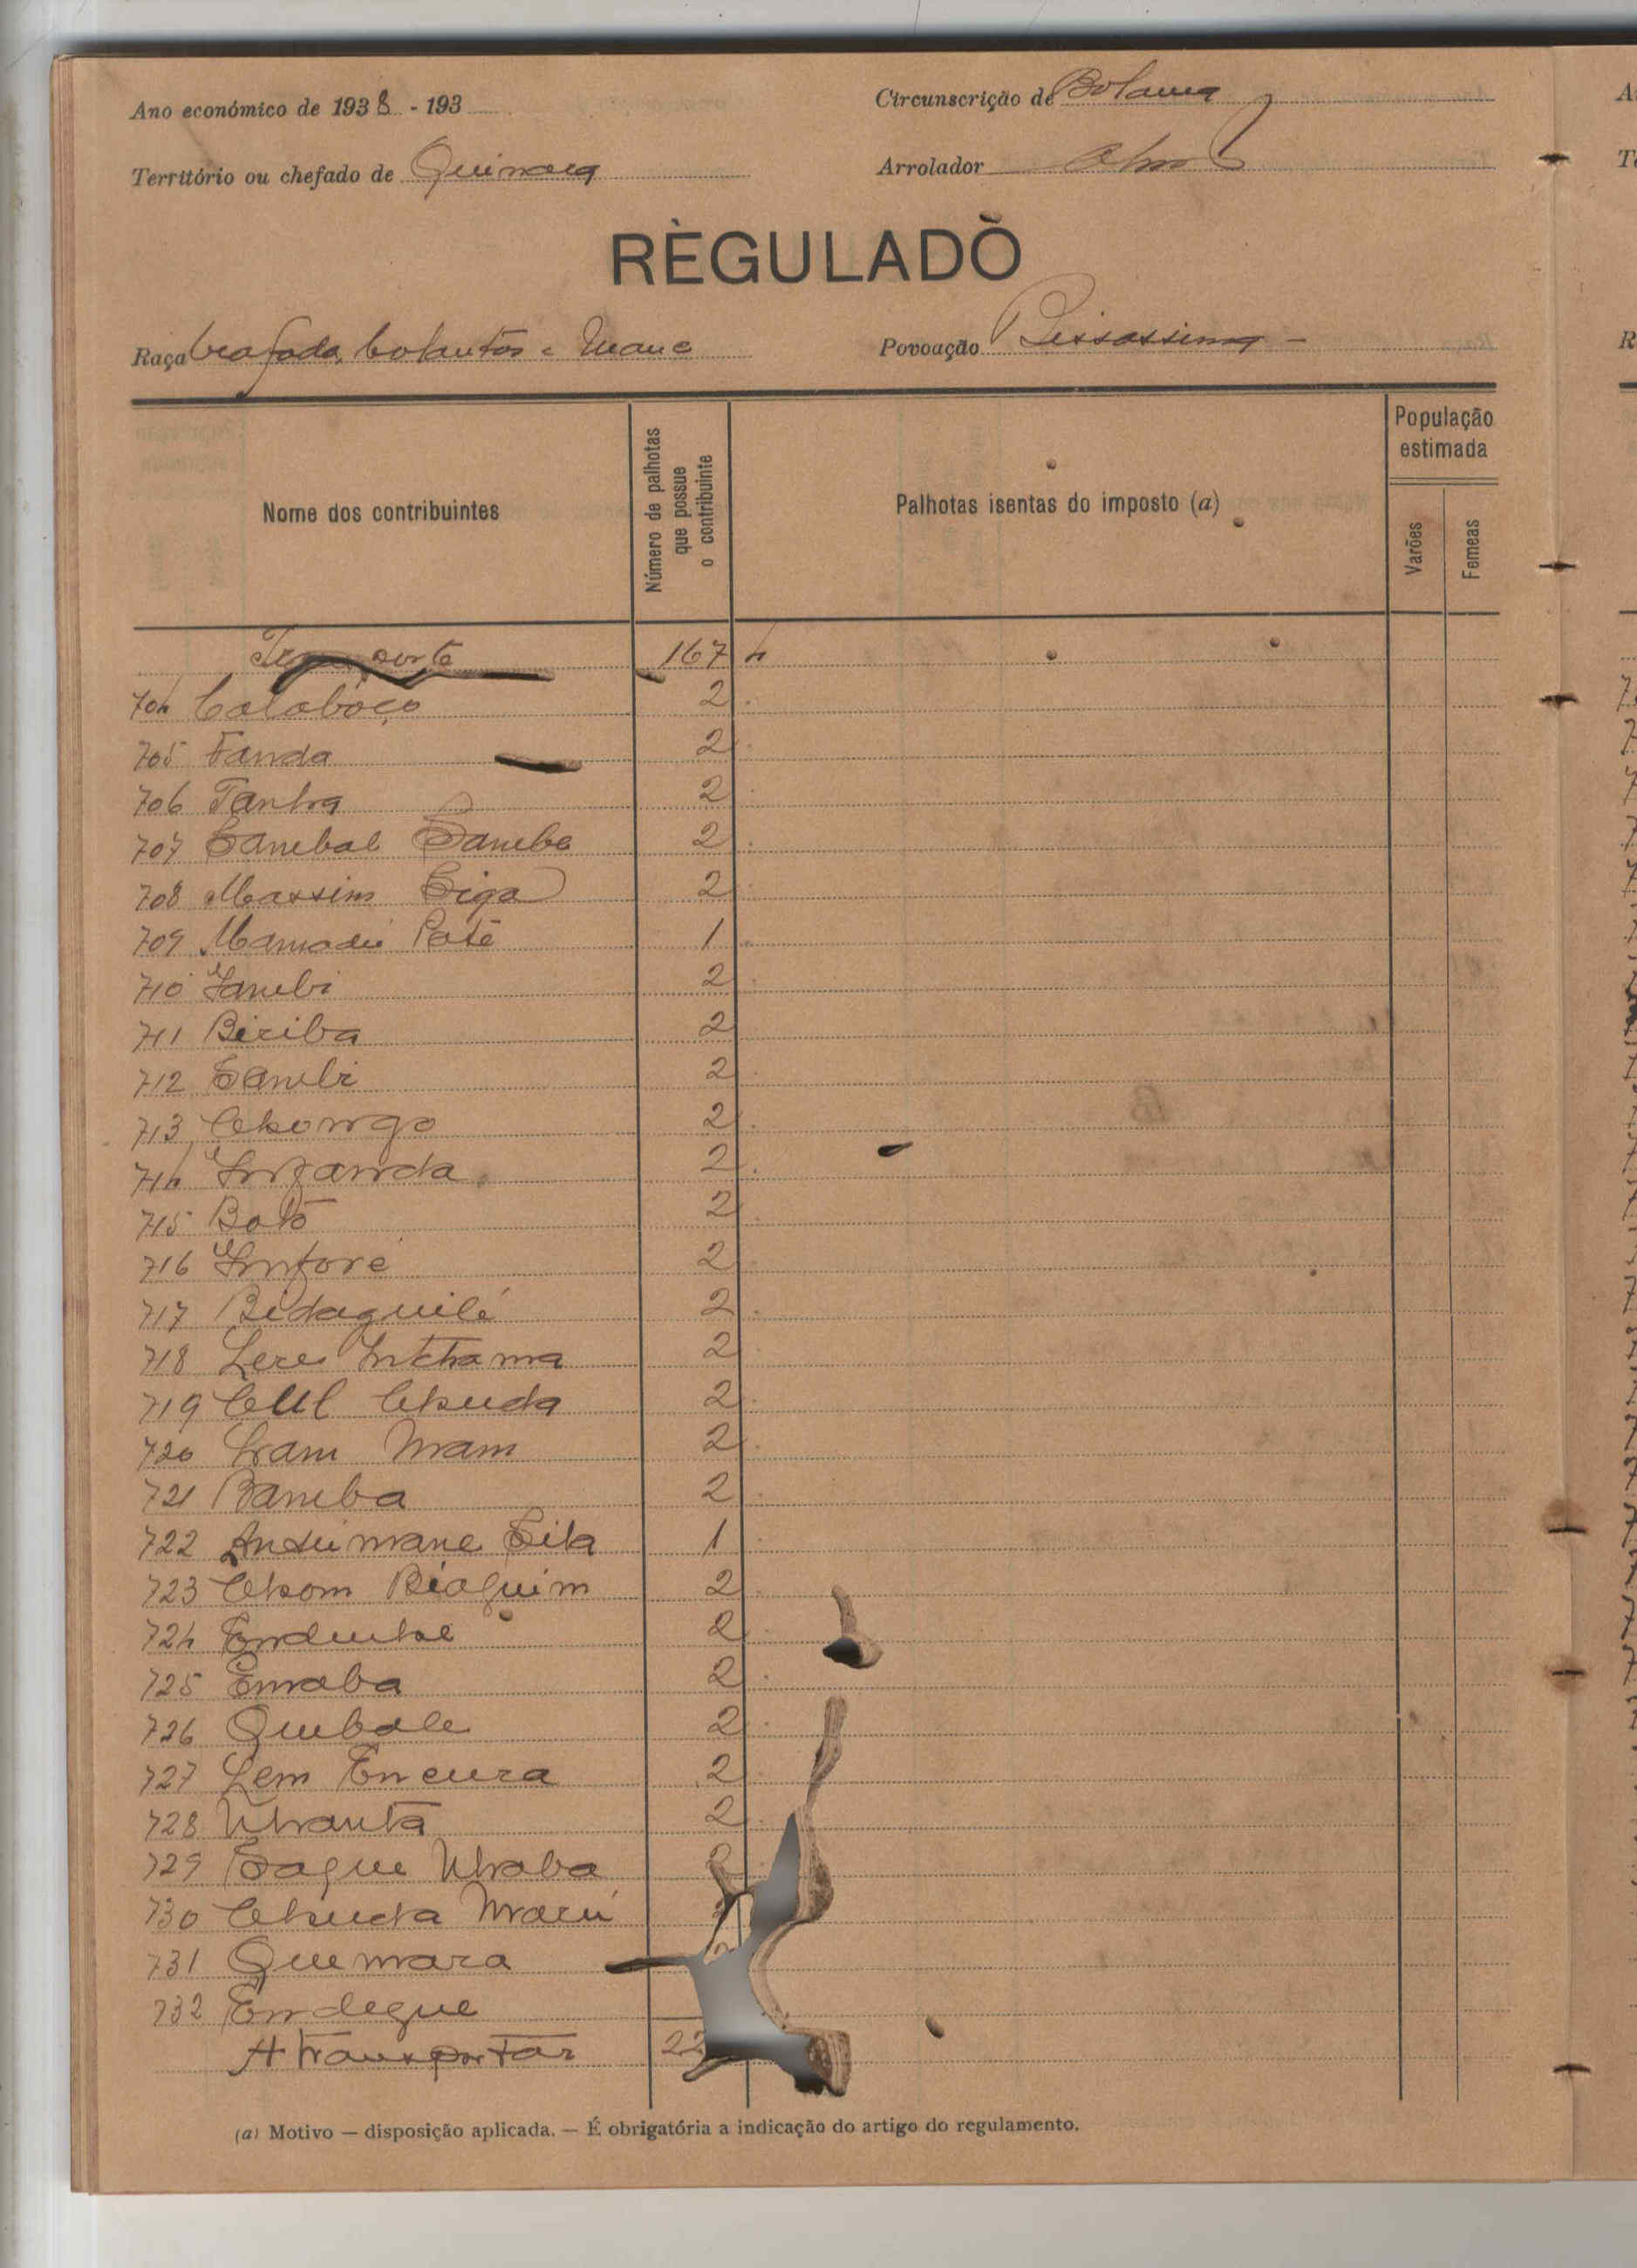 Ano económico de 1938 - 193
Circunscrição de Bolama
Território ou chefado de Quinara
Arrolador
REGULADO
Raça beafada, balantas e Mane
Povoação Bissassema
Nome dos contribuintes
Número de palhotas que possue o contribuinte
Palhotas isentas do imposto (a)
População estimada
Varões
Femeas
Transporte 167
704 Calaboço 2
705 Fanda 2
706 Tanha 2
707 Sambal Sambe 2
708 Massim Siga 2
709 Mamadú Paté 1
710 Iambi 2
711 Biriba 2
712 Sambi 2
713 Chongo 2
714 Infanda 2
715 Botó 2
716 Infore 2
717 Bidaguilé 2
718 Lere Intchama 2
719 2
720 2
721 Bamba 2
722 Ansumane Sila 1
723 2
724 2
725 Emaba 2
726 Quebale 2
727 Lem Encura 2
728 2
729 Sague
730
731 Quemara
732 Endegue
A transportar 22
(a) Motivo — disposição aplicada. — É obrigatória a indicação do artigo do regulamento.